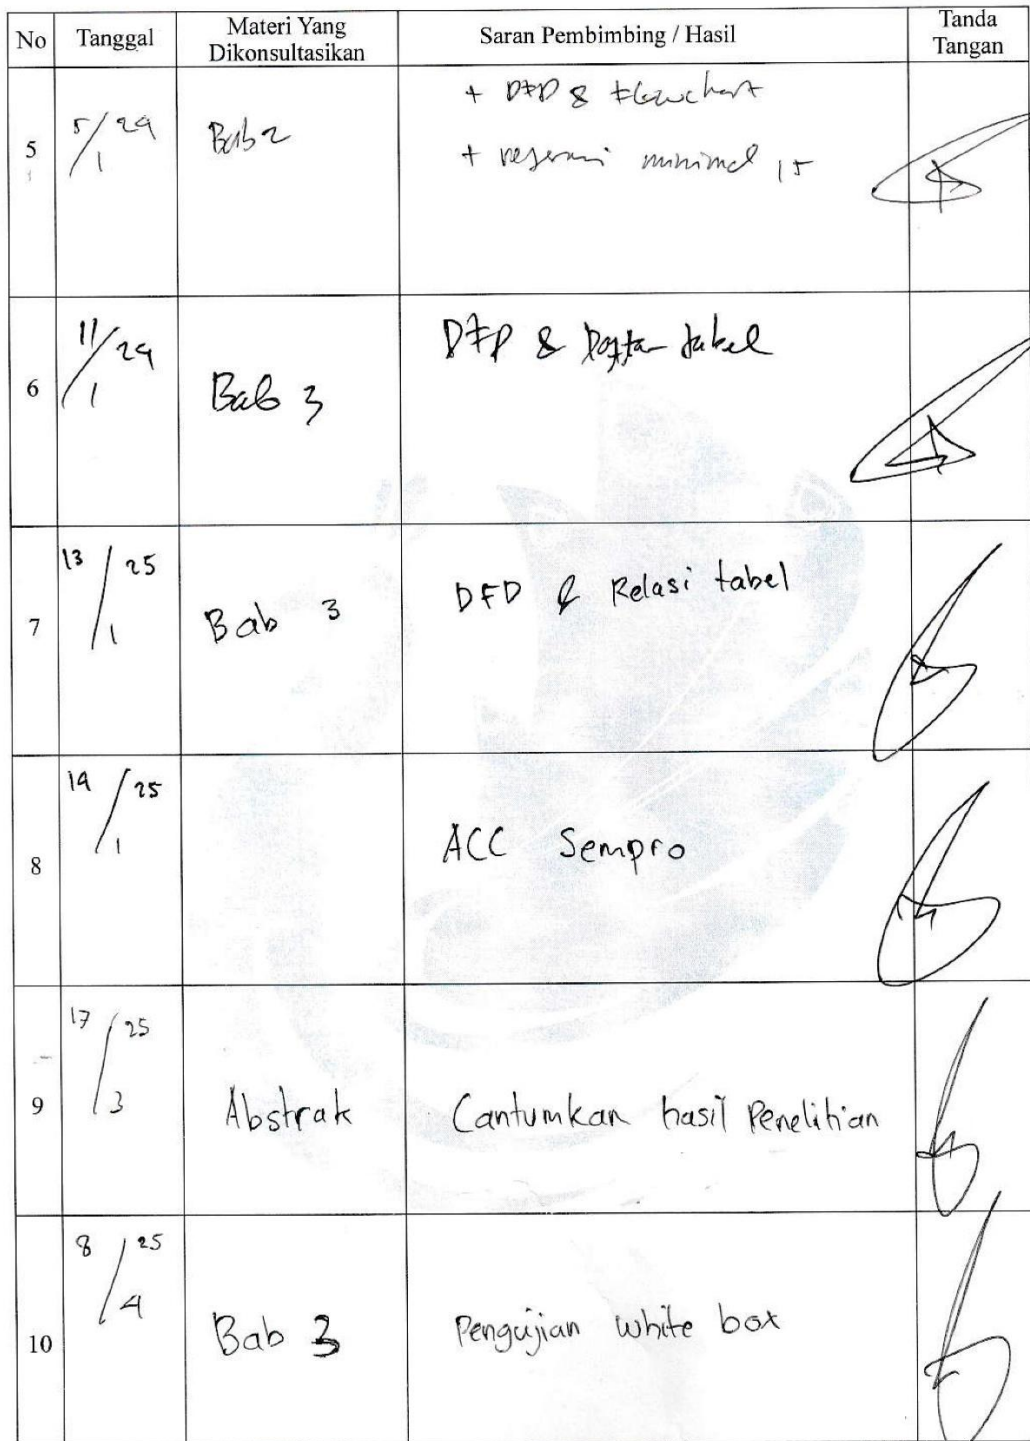 No Tanggal Materi Yang Dikonsultasikan Saran Pembimbing / Hasil Tanda Tangan
5 5/1 24 Bab 2 + DFD & Flowchart
+ minimal 15
6 11/1 24 Bab 3 DFD & Daftar tabel
7 13/1 25 Bab 3 DFD & Relasi tabel
8 14/1 25 ACC Sempro
9 17/3 25 Abstrak Cantumkan hasil Penelitian
10 8/4 25 Bab 3 Pengujian white box